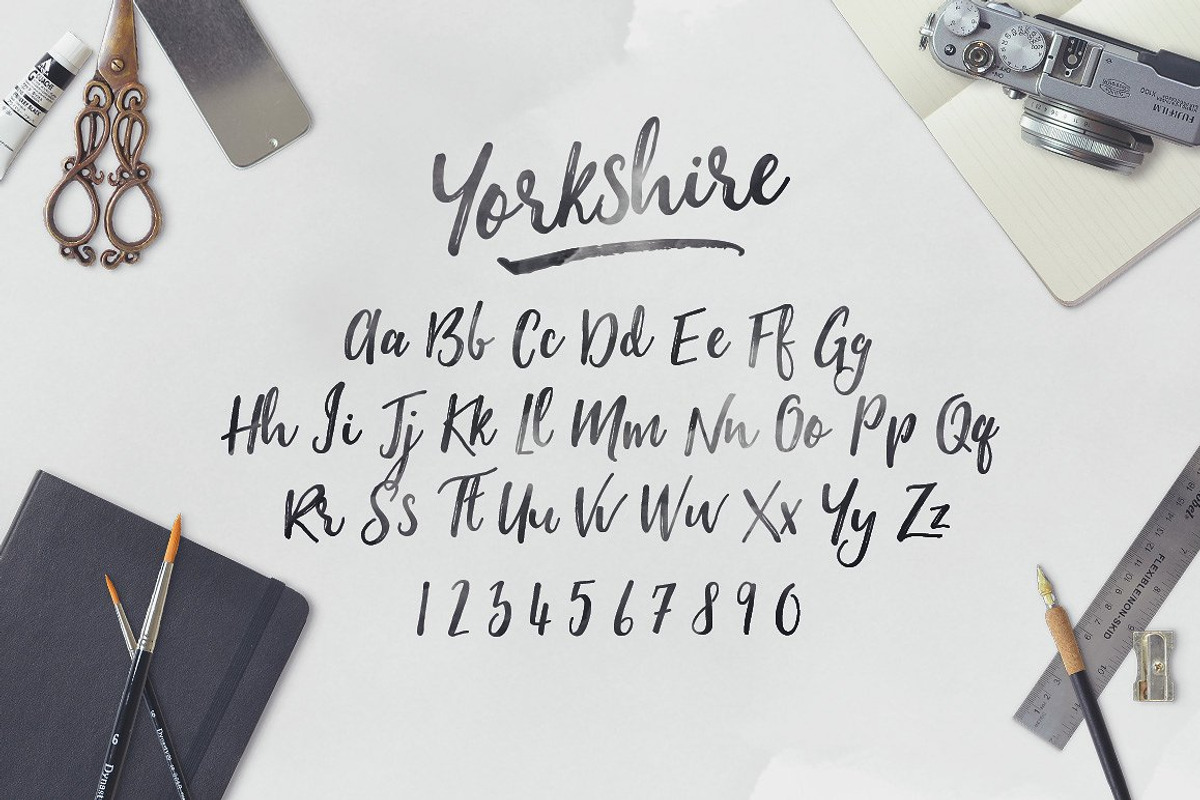 Yorkshire
Aa Bb Cc Dd Ee Ff Gg
Hh Ii Jj Kk Ll Mm Nn Oo Pp Qq
Rr Ss Tt Uu Vv Ww Xx Yy Zz
1 2 3 4 5 6 7 8 9 0
FUJIFILM
X100
FLEXIBLE/NON-SKID
6
Dynasty